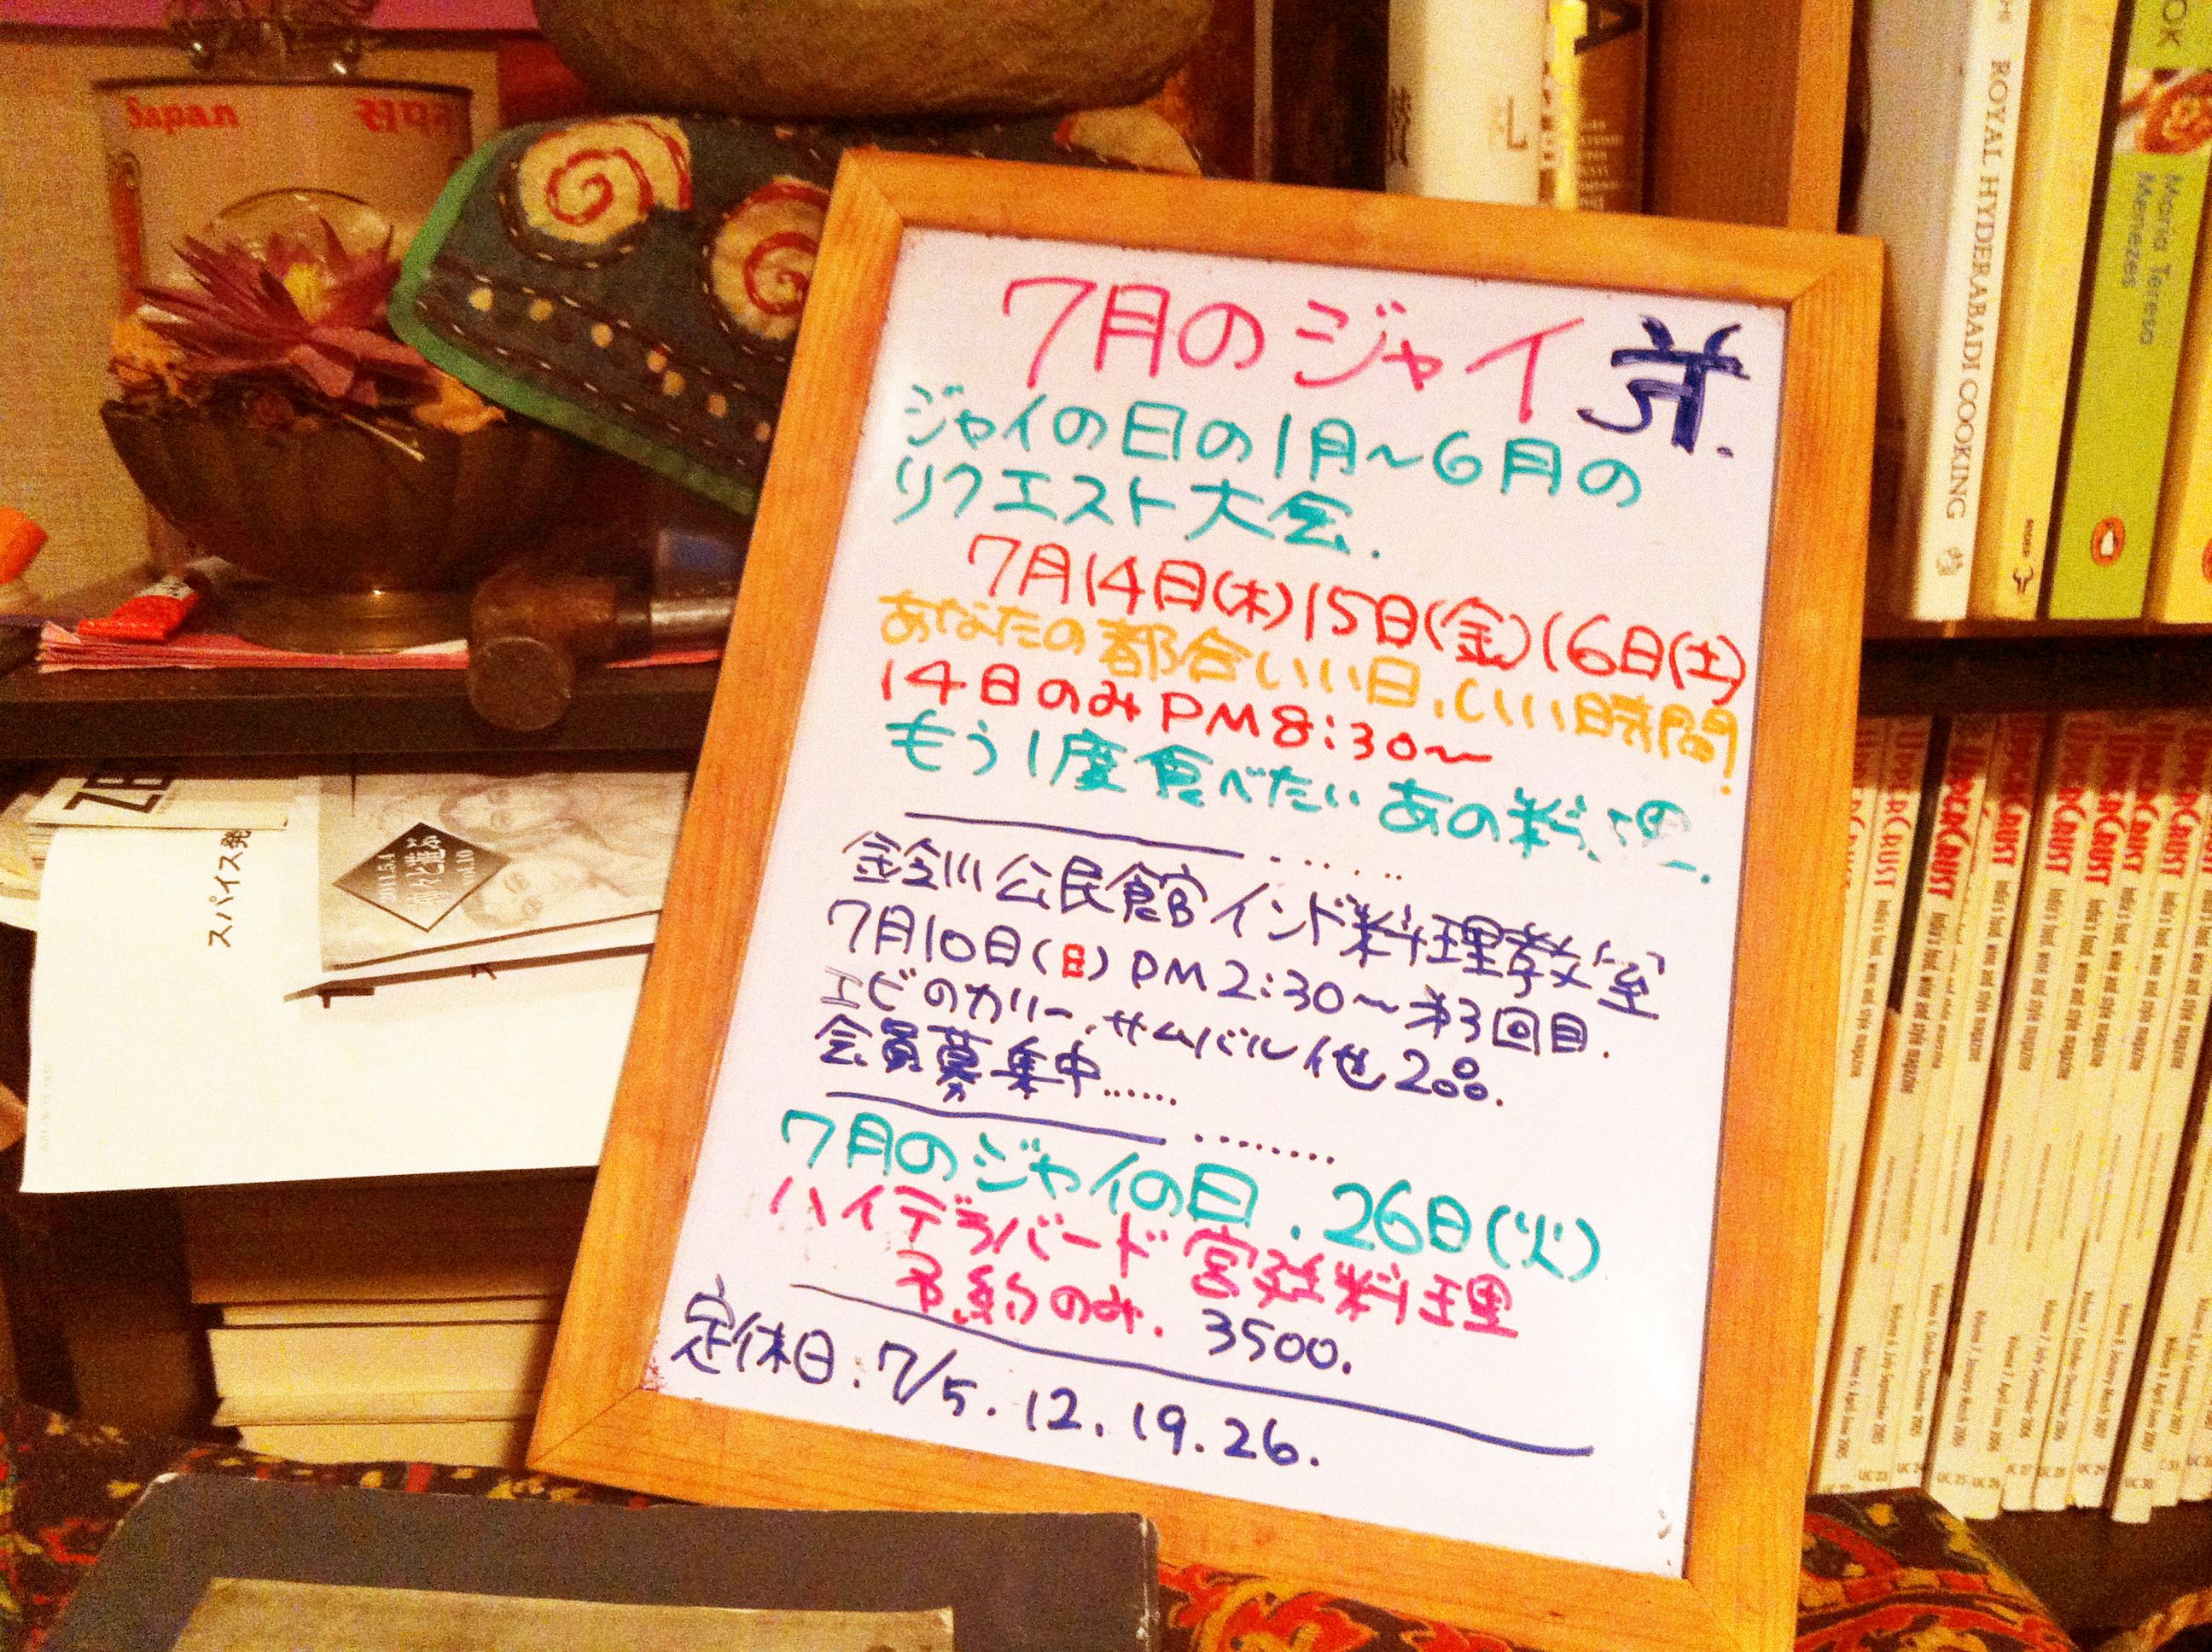 Sapan
सपन
7月のジャイ
ジャイの日の1月〜6月の
リクエスト大会.
7月14日(木)15日(金)16日(土)
あなたの都合いい日.いい時間!
14日のみPM8:30〜
もう1度食べたいあの料理.
鈴川公民館インド料理教室
7月10日(日)PM2:30〜第3回目.
エビのカリー.サムバル他
会員募集中……
7月のジャイの日.26日(火)
ハイデラバード宮廷料理
予約のみ. 3500.
定休日.7/5.12.19.26.
スパイス発
ROYAL HYDERABADI COOKING
Maria Teresa
Menezes
UPPERCRUST
India's food, wine and style magazine